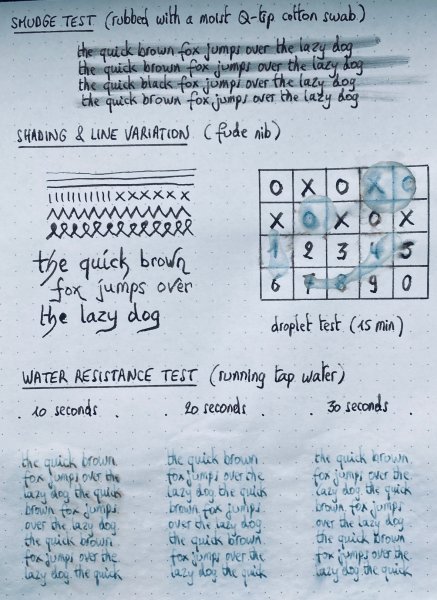 SMUDGE TEST (rubbed with a moist Q-tip cotton swab)
the quick brown fox jumps over the lazy dog
the quick brown fox jumps over the lazy dog
the quick black fox jumps over the lazy dog
the quick brown fox jumps over the lazy dog
SHADING & LINE VARIATION (fude nib)
the quick brown
fox jumps over
the lazy dog
O X O X O
X O X O X
1 2 3 4 5
6 7 8 9 0
droplet test (15 min)
WATER RESISTANCE TEST (running tap water)
10 seconds
the quick brown
fox jumps over the
lazy dog the quick
brown fox jumps
over the lazy dog
the quick brown
fox jumps over the
lazy dog the quick
20 seconds
the quick brown
fox jumps over the
lazy dog the quick
brown fox jumps
over the lazy dog
the quick brown
fox jumps over the
lazy dog the quick
30 seconds
the quick brown
fox jumps over the
lazy dog the quick
brown fox jumps
over the lazy dog
the quick brown
fox jumps over the
lazy dog the quick